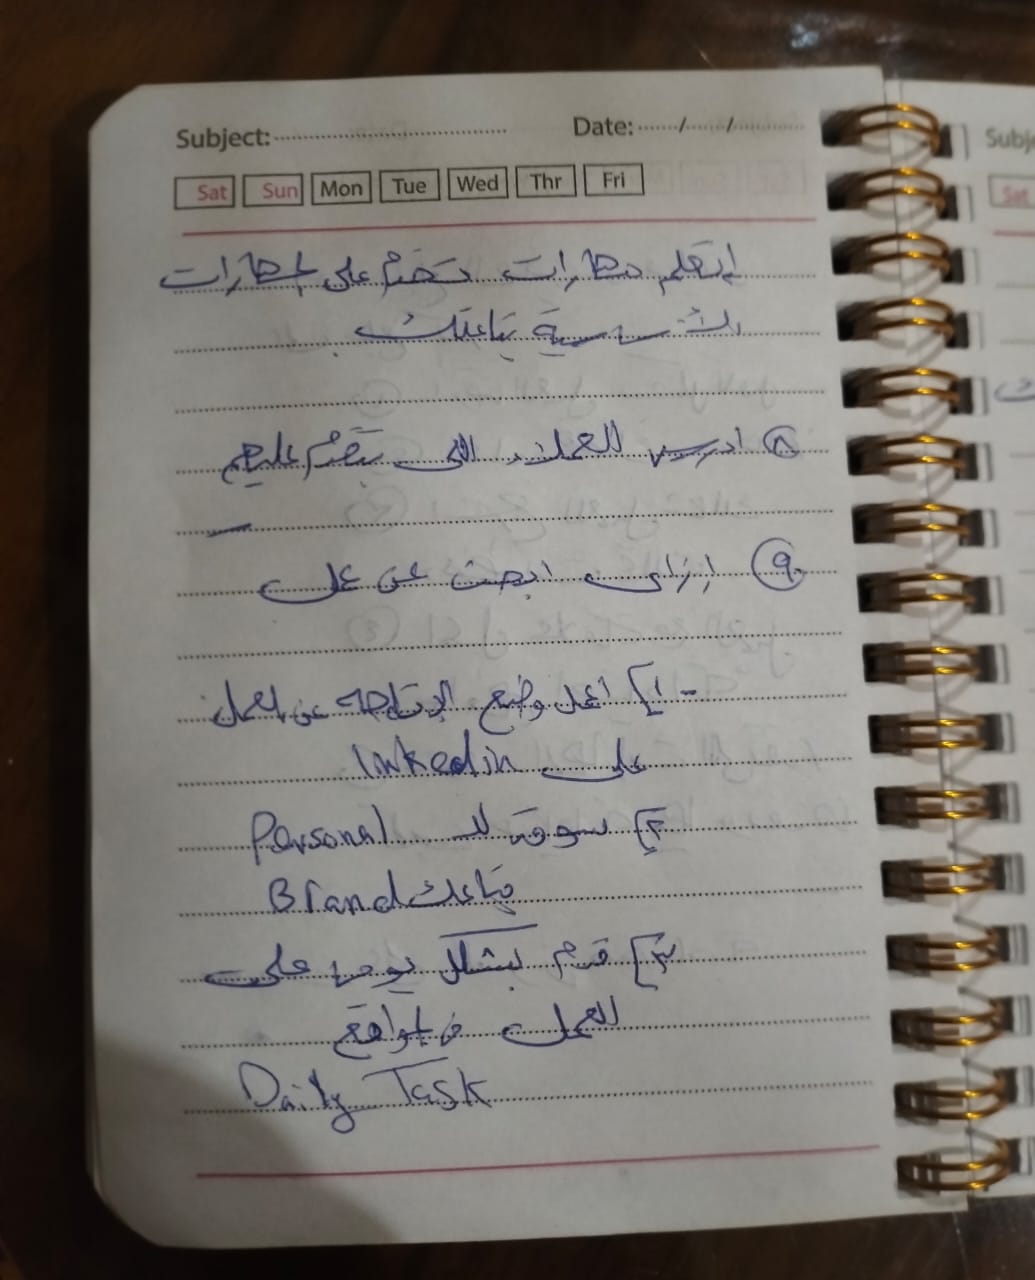 Subject: Date: / /
Sat Sun Mon Tue Wed Thr Fri
إتعلم مهارات تخدم على المهارات
الأساسية بتاعتك
٨ ادرس العملاء اللى بتقدم عليهم
٩ إزاى ابحث عن عمل
- ١] أعمل وضع الإتاحه عن العمل
على linkedin
٢] سوق لـ Personal
Brand بتاعك
٣] قدم بشكل يومى على
العمل فى المواقع
Daily Task